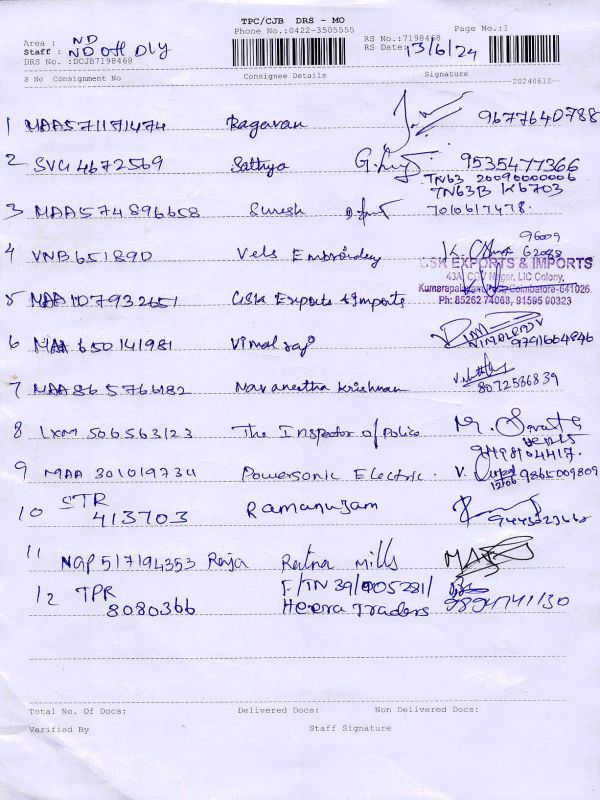 TPC/CJB DRS - MO
Phone No.:0422-3505555
Page No.:1
Area : ND
Staff : ND Off Dly
DRS No. :DCJB7198468
RS No.:7198468
RS Date: 13/6/24
S No Consignment No Consignee Details Signature
20240612
1 MAA571171474 Ragavan 9677640788
2 SVG 4672569 Sathya 9535477366
TN63 20090000006
TN63B K6703
3 MAA574896658 Suresh 7010617478.
4 VNB651890 Vels Embroidery
96009
62088
CSK EXPORTS & IMPORTS
LIC Colony,
Coimbatore-641026.
Ph: 85262 74068, 91595 90323
5 MAA 107932651 CSK Exports & Imports
6 MAA 650141981 Vimal raj
9791664846
7 MAA865766182 Navaneetha Krishnan 8072536839
8 LXM 506563123 The Inspector of Police
9498104417.
9 MAA 301019734 Powersonic Electric. 9865009809
12/06
10 STR
413703 Ramanujam
11 NGP 517194353 Raja Ratna Mills
12 TPR
8080366
F/TN 39/005281/
Heera Traders
Total No. Of Docs: Delivered Docs: Non Delivered Docs:
Verified By Staff Signature